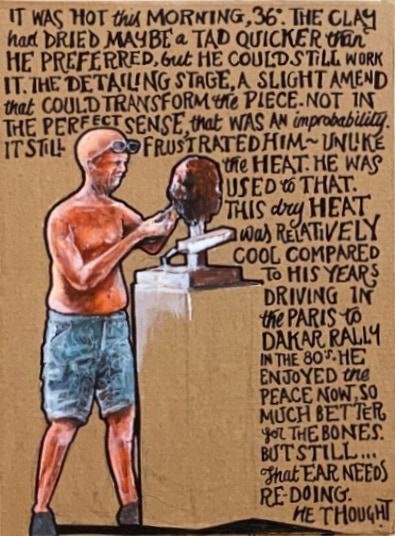 IT WAS HOT this MORNING, 36°. THE CLAY
had DRIED MAYBE a TAD QUICKER than
HE PREFERRED, but HE COULD STILL WORK
IT. THE DETAILING STAGE, A SLIGHT AMEND
that COULD TRANSFORM the PIECE. NOT IN
THE PERFECT SENSE, that WAS AN improbability.
IT STILL FRUSTRATED HIM~ UNLIKE
the HEAT. HE WAS
USED to THAT.
THIS dry HEAT
was RELATIVELY
COOL COMPARED
TO HIS YEARS
DRIVING IN
the PARIS to
DAKAR RALLY
IN THE 80's. HE
ENJOYED the
PEACE NOW, SO
MUCH BETTER
for THE BONES.
BUT STILL...
that EAR NEEDS
RE-DOING.
HE THOUGHT